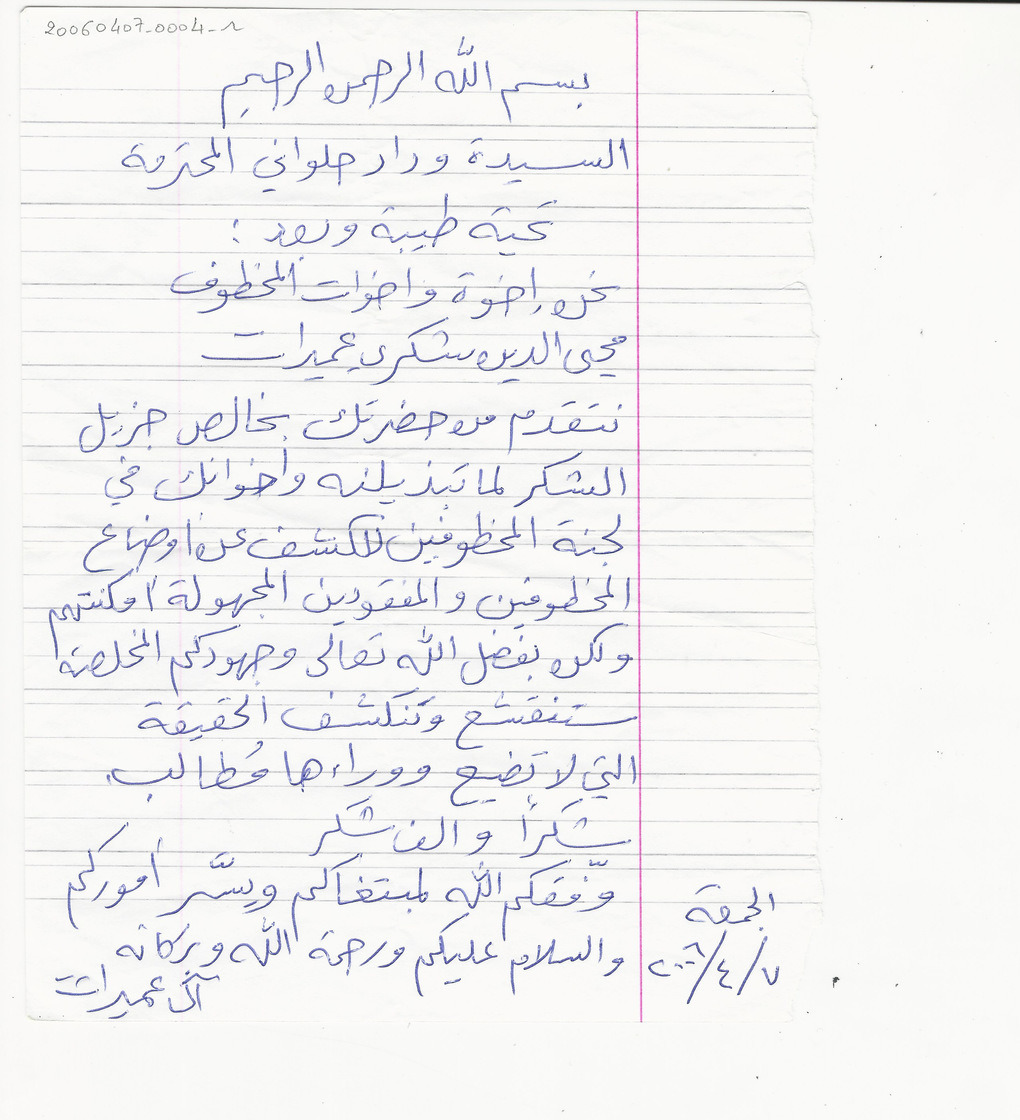 20060407-0004-r
بسم الله الرحمن الرحيم
السيدة وداد حلواني المحترمة
تحية طيبة وبعد :
نحن إخوة واخوات المخطوف
محيي الدين شكري عميرات
نتقدم من حضرتك بخالص جزيل
الشكر لما تبذيلنه واخوانك في
لجنة المخطوفين للكشف عن اوضاع
المخطوفين والمفقودين المجهولة امكنتهم
ولكن بفضل الله تعالى وجهودكم المخلصة
ستنقشع وتنكشف الحقيقة
التي لا تضيع ووراءها مُطالب.
شكراً والف شكر
وفّقكم الله لمبتغاكم ويسَّر أموركم
والسلام عليكم ورحمة الله وبركاته
آل عميرات
الجمعة
٧/٤/٢٠٠٦